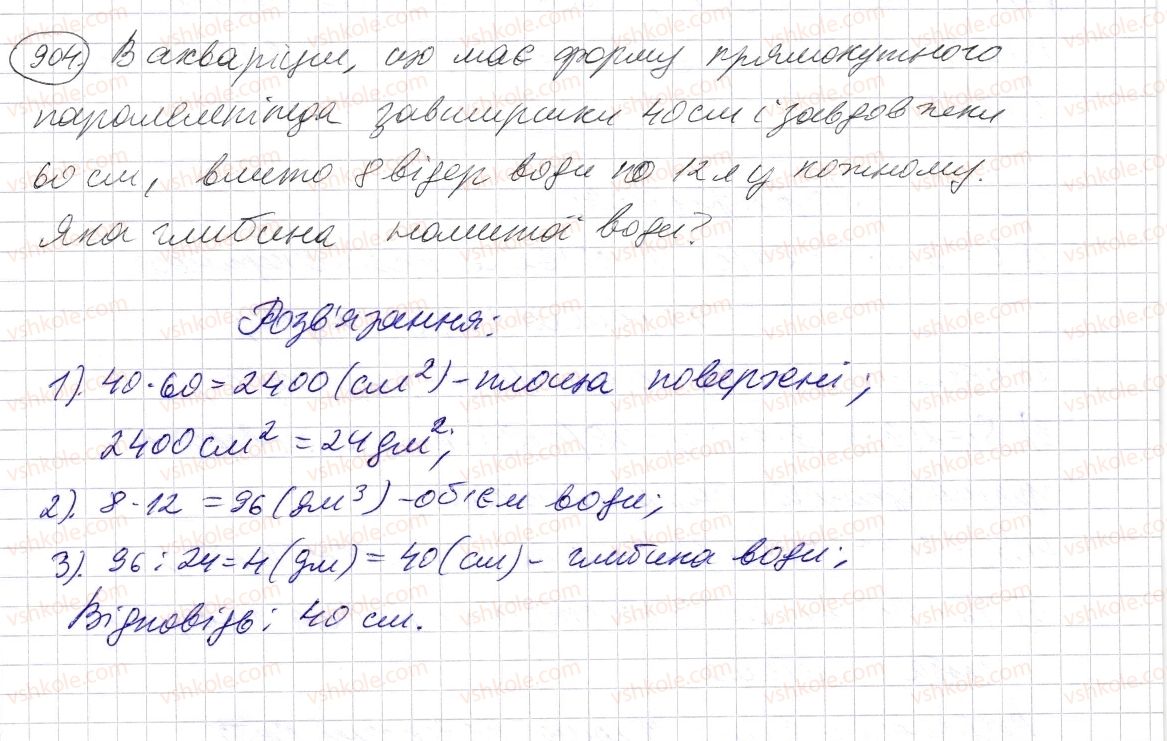 904. В акваріум, що має форму прямокутного
паралелепіпеда завширшки 40 см і завдовжки
60 см, влито 8 відер води по 12 л у кожному.
Яка глибина налитої води?
Розв'язання:
1). 40·60=2400(см²)-площа поверхні;
2400 см² = 24 дм²;
2). 8·12 = 96(дм³)-об'єм води;
3). 96:24=4(дм)=40(см)- глибина води;
Відповідь: 40 см.